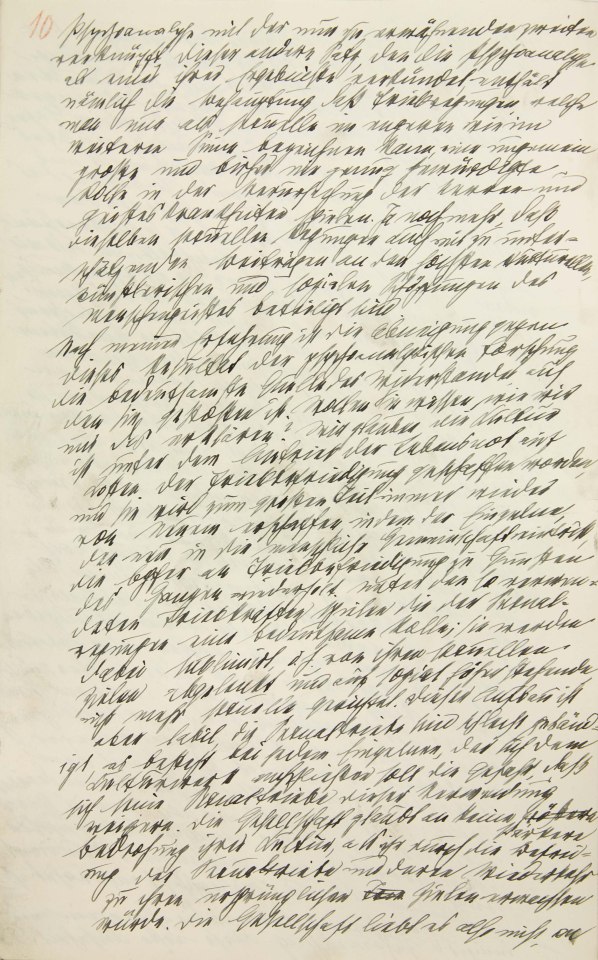 10
Psychoanalyse mit der nun zu erwähnenden zweiten
verknüpft. Dieser andere Satz den die Psychoanalyse
als eines ihrer Ergebnisse verkündet enthält
nämlich die Behauptung daß Triebregungen welche
man nur als sexuelle im engeren wie im
weiteren Sinn bezeichnen kann, eine ungemein
große und bisher nie genug gewürdigte
Rolle in der Verursachung der Nerven- und
Geisteskrankheiten spielen. Ja noch mehr, daß
dieselben sexuellen Regungen auch mit nicht zu unter-
schätzenden Beiträgen an den höchsten kulturellen,
künstlerischen und sozialen Schöpfungen des
Menschengeistes beteiligt sind
Nach meiner Erfahrung ist die Abneigung gegen
dieses Resultat der psychoanalytischen Forschung
die bedeutsamste Quelle des Widerstandes auf
den sie gestoßen ist. Wollen Sie wissen, wie wir
uns das erklären? Wir glauben die Kultur
ist unter dem Antrieb der Lebensnot auf
Kosten der Triebbefriedigung geschaffen worden,
und sie wird zum großen Teil immer wieder
von Neuem erschaffen, indem der Einzelne,
der neu in die menschliche Gemeinschaft eintritt,
die Opfer an Triebbefriedigung zu Gunsten
des Ganzen wiederholt. Unter den so verwen-
deten Triebkräften spielen die der Sexual-
regungen eine bedeutsame Rolle; sie werden
dabei sublimiert, d. h. von ihren sexuellen
Zielen abgelenkt und auf sozial höher stehende,
nicht mehr sexuelle gerichtet. Dieser Aufbau ist
aber labil, die Sexualtriebe sind schlecht gebänd-
igt, es besteht bei jedem Einzelnen, der sich dem
Kulturwerk anschließen soll die Gefahr, daß
sich seine Sexualtriebe dieser Verwendung
weigern. Die Gesellschaft glaubt an keine
stärkere
Bedrohung ihrer Kultur, als ihr durch die Befrei-
ung der Sexualtriebe und deren Wiederkehr
zu ihren ursprünglichen Zielen erwachsen
würde. Die Gesellschaft liebt es also nicht, an